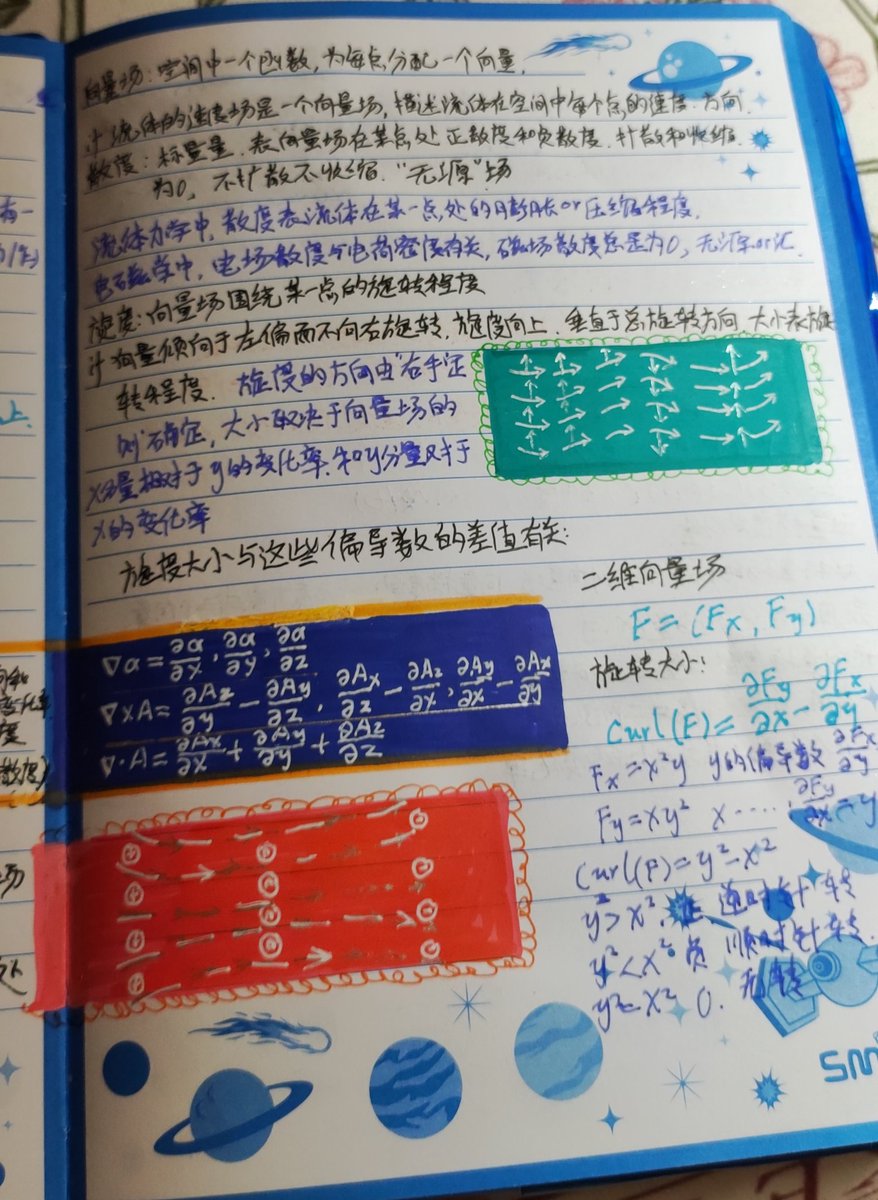 向量场：空间中一个函数，为每点分配一个向量，
流体的速度场是一个向量场，描述流体在空间中每个点的速度、方向
散度：标量量 表向量场在某点处 正散度和负散度，扩散和收缩
为0，不扩散不收缩．“无源”场
流体力学中，散度表流体在某一点处的膨胀or压缩程度，
电磁学中，电场散度与电荷密度有关，磁场散度总是为0，无源or汇
旋度：向量场围绕某一点的旋转程度
向量倾向于左偏而不向右旋转，旋度向上．垂直于总旋转方向，大小表旋
转程度． 旋度的方向由“右手定
则”确定，大小取决于向量场的
x分量相对于y的变化率，和y分量对于
x的变化率
旋度大小与这些偏导数的差值有关：
∇a = ∂a/∂x , ∂a/∂y , ∂a/∂z
∇×A = ∂Az/∂y - ∂Ay/∂z , ∂Ax/∂z - ∂Az/∂x , ∂Ay/∂x - ∂Ax/∂y
∇·A = ∂Ax/∂x + ∂Ay/∂y + ∂Az/∂z
二维向量场
F = (Fx, Fy)
旋转大小：
Curl(F) = ∂Fy/∂x - ∂Fx/∂y
Fx = x²y y的偏导数 ∂Fx/∂y
Fy = xy² x ····· ∂Fy/∂x = y
Curl(F) = y² - x²
y² > x²，正 逆时针转
y² < x² 负 顺时针转
y² = x² 0．无转